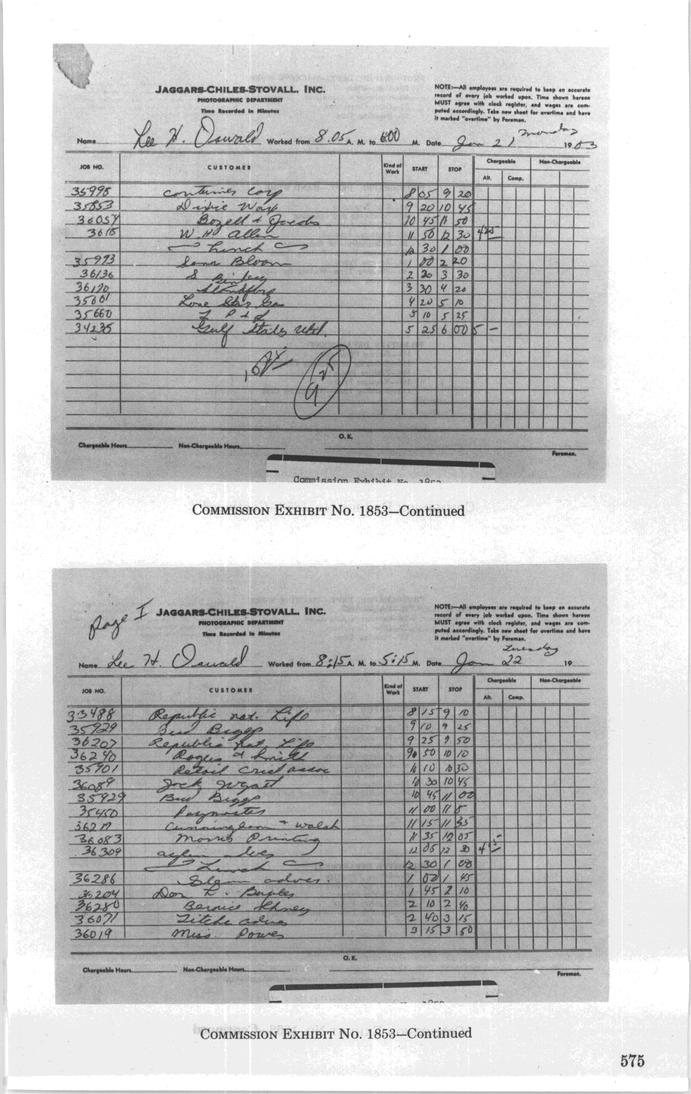 JAGGARS-CHILES-STOVALL, INC.
PHOTOGRAPHIC DEPARTMENT
Time Recorded in Minutes
NOTE:—All employees are required to keep an accurate
record of every job worked upon. Time shown hereon
MUST agree with clock register, and wages are com-
puted accordingly. Take new sheet for overtime and have
it marked "overtime" by Foreman.
Monday
Name Lee H. Oswald Worked from 8:05 A. M. to 6:00 M. Date Jan 21 1963
JOB NO. CUSTOMER Kind of Work START STOP Chargeable Alt. Comp. Non-Chargeable
35998 Corp 8 05 9 20
35853 Dixie Wax 9 20 10 45
36057 Bozell & Jacobs 10 45 11 50
3618 W. H. Allen 11 50 12 30 425
Lunch 12 30 1 00
35973 Sam Bloom 1 00 2 20
36136 S 2 20 3 30
36170 3 30 4 20
35601 Lone Star Gas 4 20 5 10
35660 T P & L 5 10 5 25
34235 Gulf States Utd. 5 25 6 00 5 –
925
O.K.
Chargeable Hours Non-Chargeable Hours Foreman.
Commission Exhibit No. 1853
COMMISSION EXHIBIT No. 1853—Continued
page I
JAGGARS-CHILES-STOVALL, INC.
PHOTOGRAPHIC DEPARTMENT
Time Recorded in Minutes
NOTE:—All employees are required to keep an accurate
record of every job worked upon. Time shown hereon
MUST agree with clock register, and wages are com-
puted accordingly. Take new sheet for overtime and have
it marked "overtime" by Foreman.
Tuesday
Name Lee H. Oswald Worked from 8:15 A. M. to 5:15 M. Date Jan 22 19
JOB NO. CUSTOMER Kind of Work START STOP Chargeable Alt. Comp. Non-Chargeable
33488 Republic nat. Life 8 15 9 10
35929 Bud Biggs 9 10 9 25
36207 Republic nat. Life 9 25 9 50
36240 Rogers & Smith 9 50 10 10
35901 Retail Cred assoc 10 10 10 30
36089 Jack Wyatt 10 30 10 45
35929 Bud Biggs 10 45 11 00
35450 11 00 11 5
36217 Cunningham & Walsh 11 15 11 35
36083 Morris Printing 11 35 12 05
36309 12 05 12 30 415
Lunch 12 30 1 00
36286 Glenn advs. 1 00 1 45
36204 Don L. Baxter 1 45 2 10
36280 Bernice 2 10 2 40
36071 Titche advs 2 40 3 15
36019 Miss. Power 3 15 3 50
O.K.
Chargeable Hours Non-Chargeable Hours Foreman.
COMMISSION EXHIBIT No. 1853—Continued
575